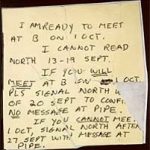 I AM READY TO MEET
AT B ON 1 OCT.
I CANNOT READ
NORTH 13-19 SEPT.
IF YOU WILL
MEET AT B ON 1 OCT.
PLS SIGNAL NORTH W
OF 20 SEPT TO CONFI.
NO MESSAGE AT PIPE.
IF YOU CANNOT MEE.
1 OCT, SIGNAL NORTH AFTER
27 SEPT WITH MESSAGE AT
PIPE.